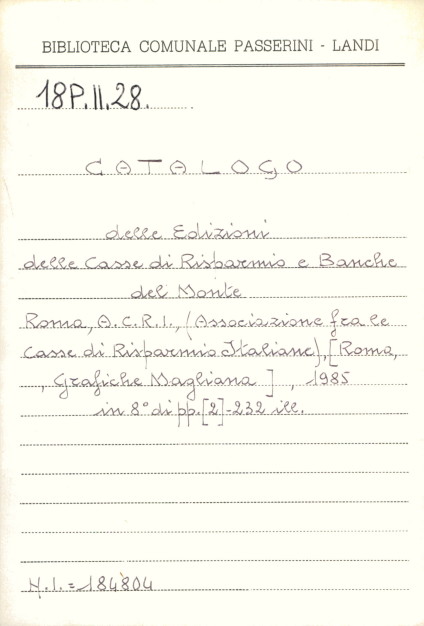 BIBLIOTECA COMUNALE PASSERINI - LANDI
18P.II.28.
CATALOGO
delle Edizioni
delle Casse di Risparmio e Banche
del Monte
Roma, A.C.R.I., (Associazione fra le
Casse di Risparmio Italiane), [Roma,
, Grafiche Magliana ] , 1985
in 8° di pp. [2]-232 ill.
N.I. = 184804